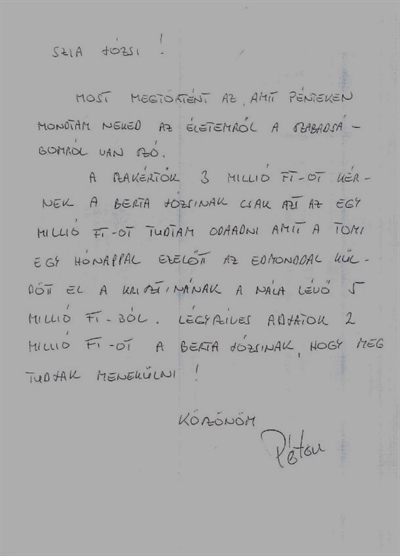 SZIA JÓZSI!
MOST MEGTÖRTÉNT AZ, AMIT PÉNTEKEN
MONDTAM NEKED AZ ÉLETEMRŐL A SZABADSÁ-
GOMRÓL VAN SZÓ.
A SZAKÉRTŐK 3 MILLIÓ FT-OT KÉR-
NEK A BERTA JÓZSINAK CSAK AZT AZ EGY
MILLIÓ FT-OT TUDTAM ODAADNI AMIT A TOMI
EGY HÓNAPPAL EZELŐTT AZ EDMONDDAL KÜL-
DÖTT EL A KRISZTINÁNAK A NÁLA LÉVŐ 5
MILLIÓ FT-BÓL. LÉGYSZÍVES ADJATOK 2
MILLIÓ FT-OT A BERTA JÓZSINAK, HOGY MEG
TUDJAK MENEKÜLNI!
KÖSZÖNÖM